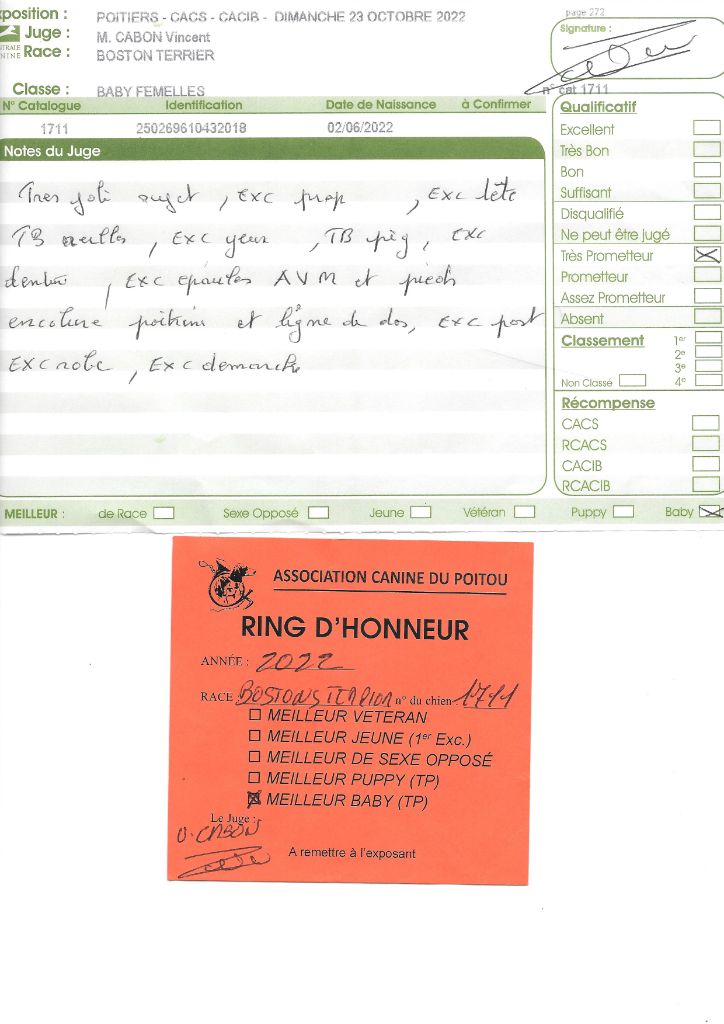 xposition : POITIERS - CACS - CACIB - DIMANCHE 23 OCTOBRE 2022
page 272
Juge : M. CABON Vincent
Signature :
NTRALE
NINE Race : BOSTON TERRIER
Classe : BABY FEMELLES
n° cat 1711
N° Catalogue Identification Date de Naissance à Confirmer
1711 250269610432018 02/06/2022
Qualificatif
Excellent
Très Bon
Bon
Suffisant
Disqualifié
Ne peut être jugé
Très Prometteur
Prometteur
Assez Prometteur
Absent
Classement 1er
2e
3e
Non Classé 4e
Récompense
CACS
RCACS
CACIB
RCACIB
Notes du Juge
Tres joli sujet , Exc prop , Exc tête
TB oreilles , Exc yeux , TB pig , Exc
denture , Exc epaules AVM et pieds
encolure poitrine et ligne de dos, Exc post
Exc robe , Exc demarche
MEILLEUR : de Race Sexe Opposé Jeune Vétéran Puppy Baby
ASSOCIATION CANINE DU POITOU
RING D'HONNEUR
ANNÉE : 2022
RACE : BOSTONS TERRIER n° du chien : 1711
MEILLEUR VETERAN
MEILLEUR JEUNE (1er Exc.)
MEILLEUR DE SEXE OPPOSÉ
MEILLEUR PUPPY (TP)
MEILLEUR BABY (TP)
Le Juge :
V. CABON
A remettre à l'exposant